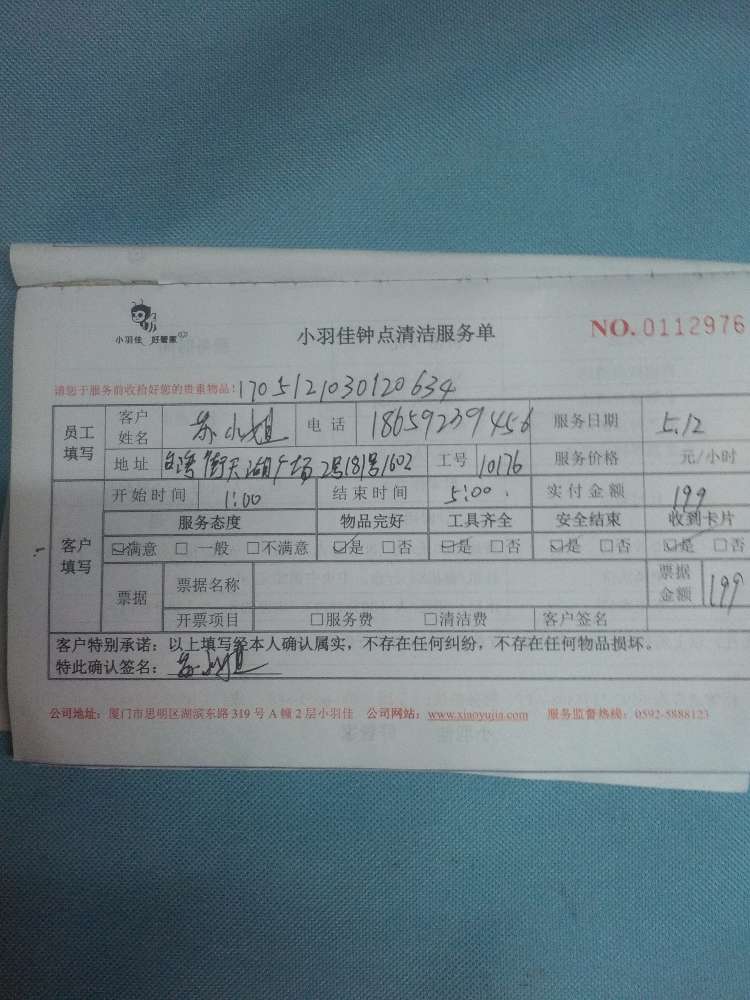 小羽佳 好管家
小羽佳钟点清洁服务单
NO. 0112976
请您于服务前收拾好您的贵重物品: 1705121030120634
员工填写 客户姓名 苏小姐 电话 18659239456 服务日期 5.12
地址 台湾街天湖广场2号181号1602 工号 10176 服务价格 元/小时
客户填写 开始时间 1:00 结束时间 5:00. 实付金额 199
服务态度 物品完好 工具齐全 安全结束 收到卡片
☑满意 □ 一般 □不满意 ☑是 □否 ☑是 □否 ☑是 □否 ☑是 □否
票据 票据名称 票据金额 199
开票项目 □服务费 □清洁费 客户签名
客户特别承诺: 以上填写经本人确认属实, 不存在任何纠纷, 不存在任何物品损坏。
特此确认签名: 苏小姐
公司地址: 厦门市思明区湖滨东路 319 号 A 幢 2 层小羽佳 公司网站: www.xiaoyujia.com 服务监督热线: 0592-5888123